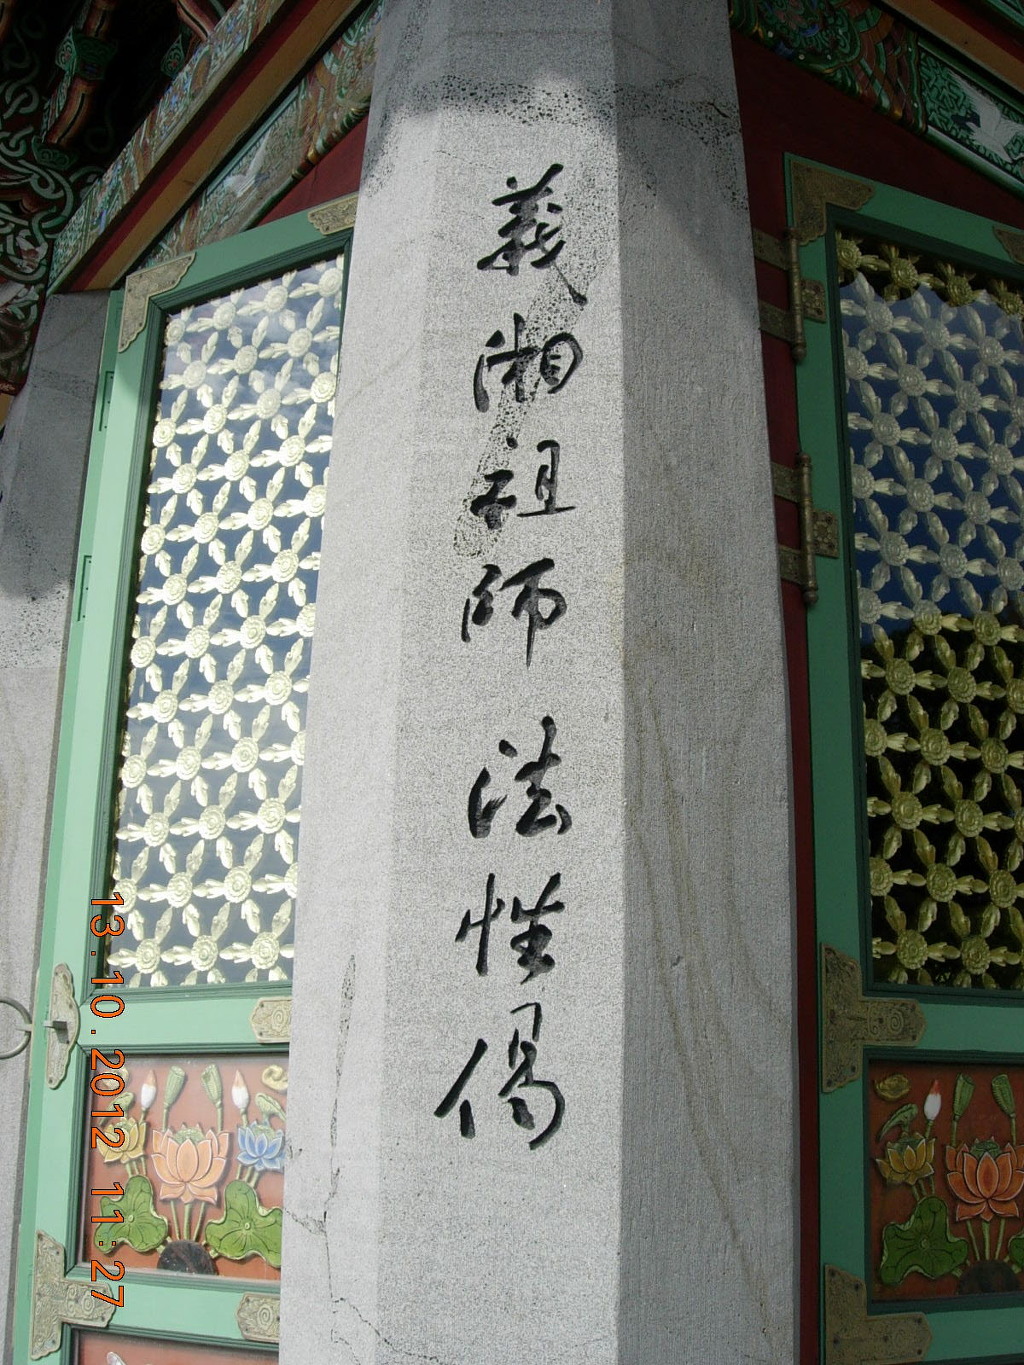 義湘祖師法性偈
13.10.2012 11:27